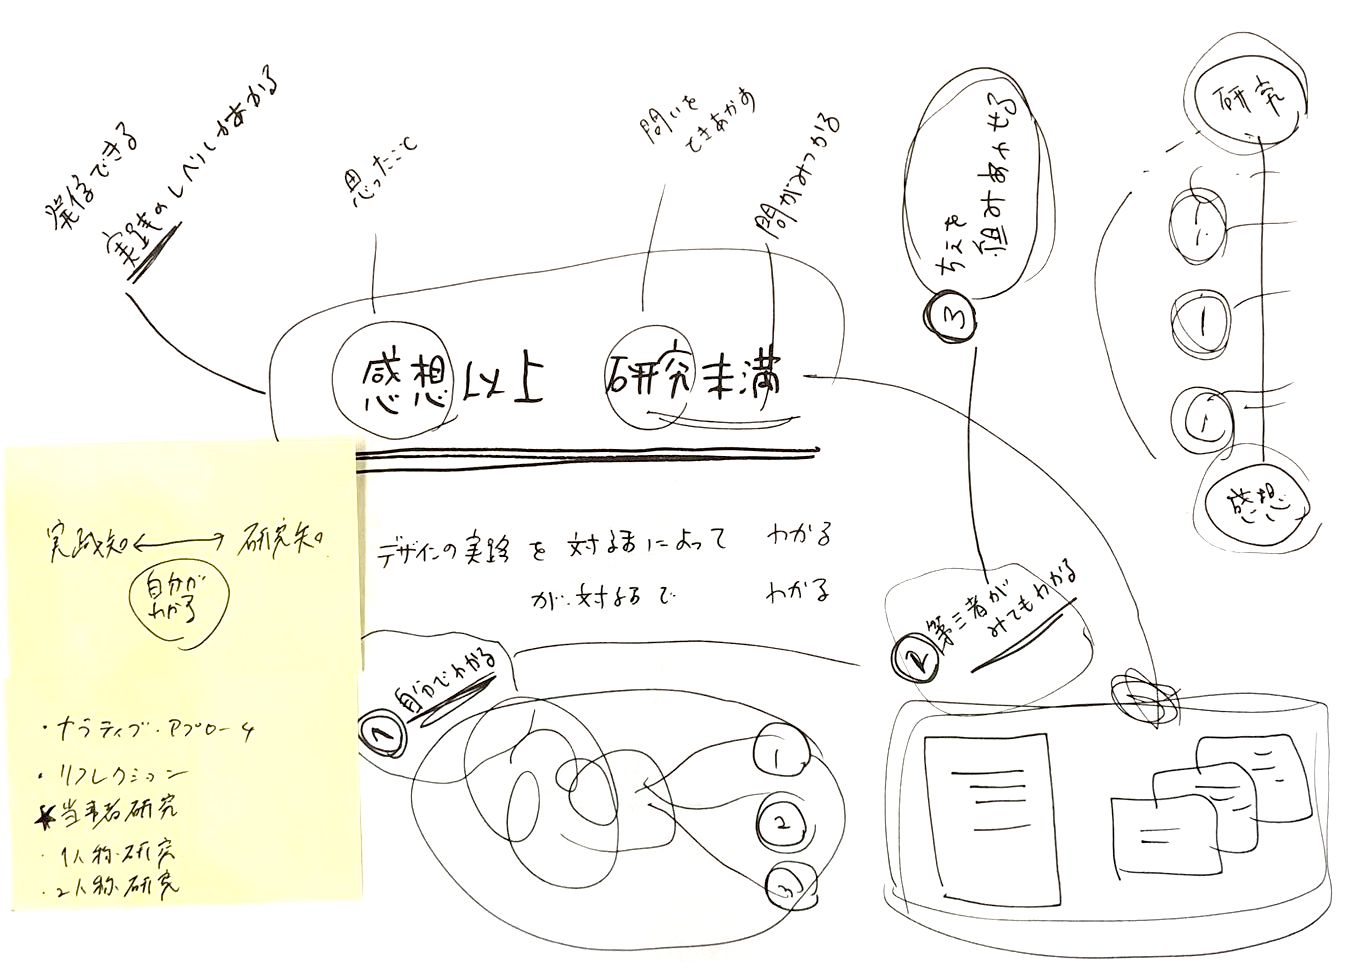 発信できる
実践のレベルがあがる
思ったこと
問いを
問がみつかる
ちえを
組みあわせる
3
研究
1
1
感想
感想以上 研究未満
実践知 ↔ 研究知
自分が
わかる
デザインの実践 を によって わかる
が わかる
1 自分でわかる
2 第三者が
みてもわかる
・ナラティブ・アプローチ
・リフレクション
★当事者研究
・1人称研究
・2人称研究
1
2
3